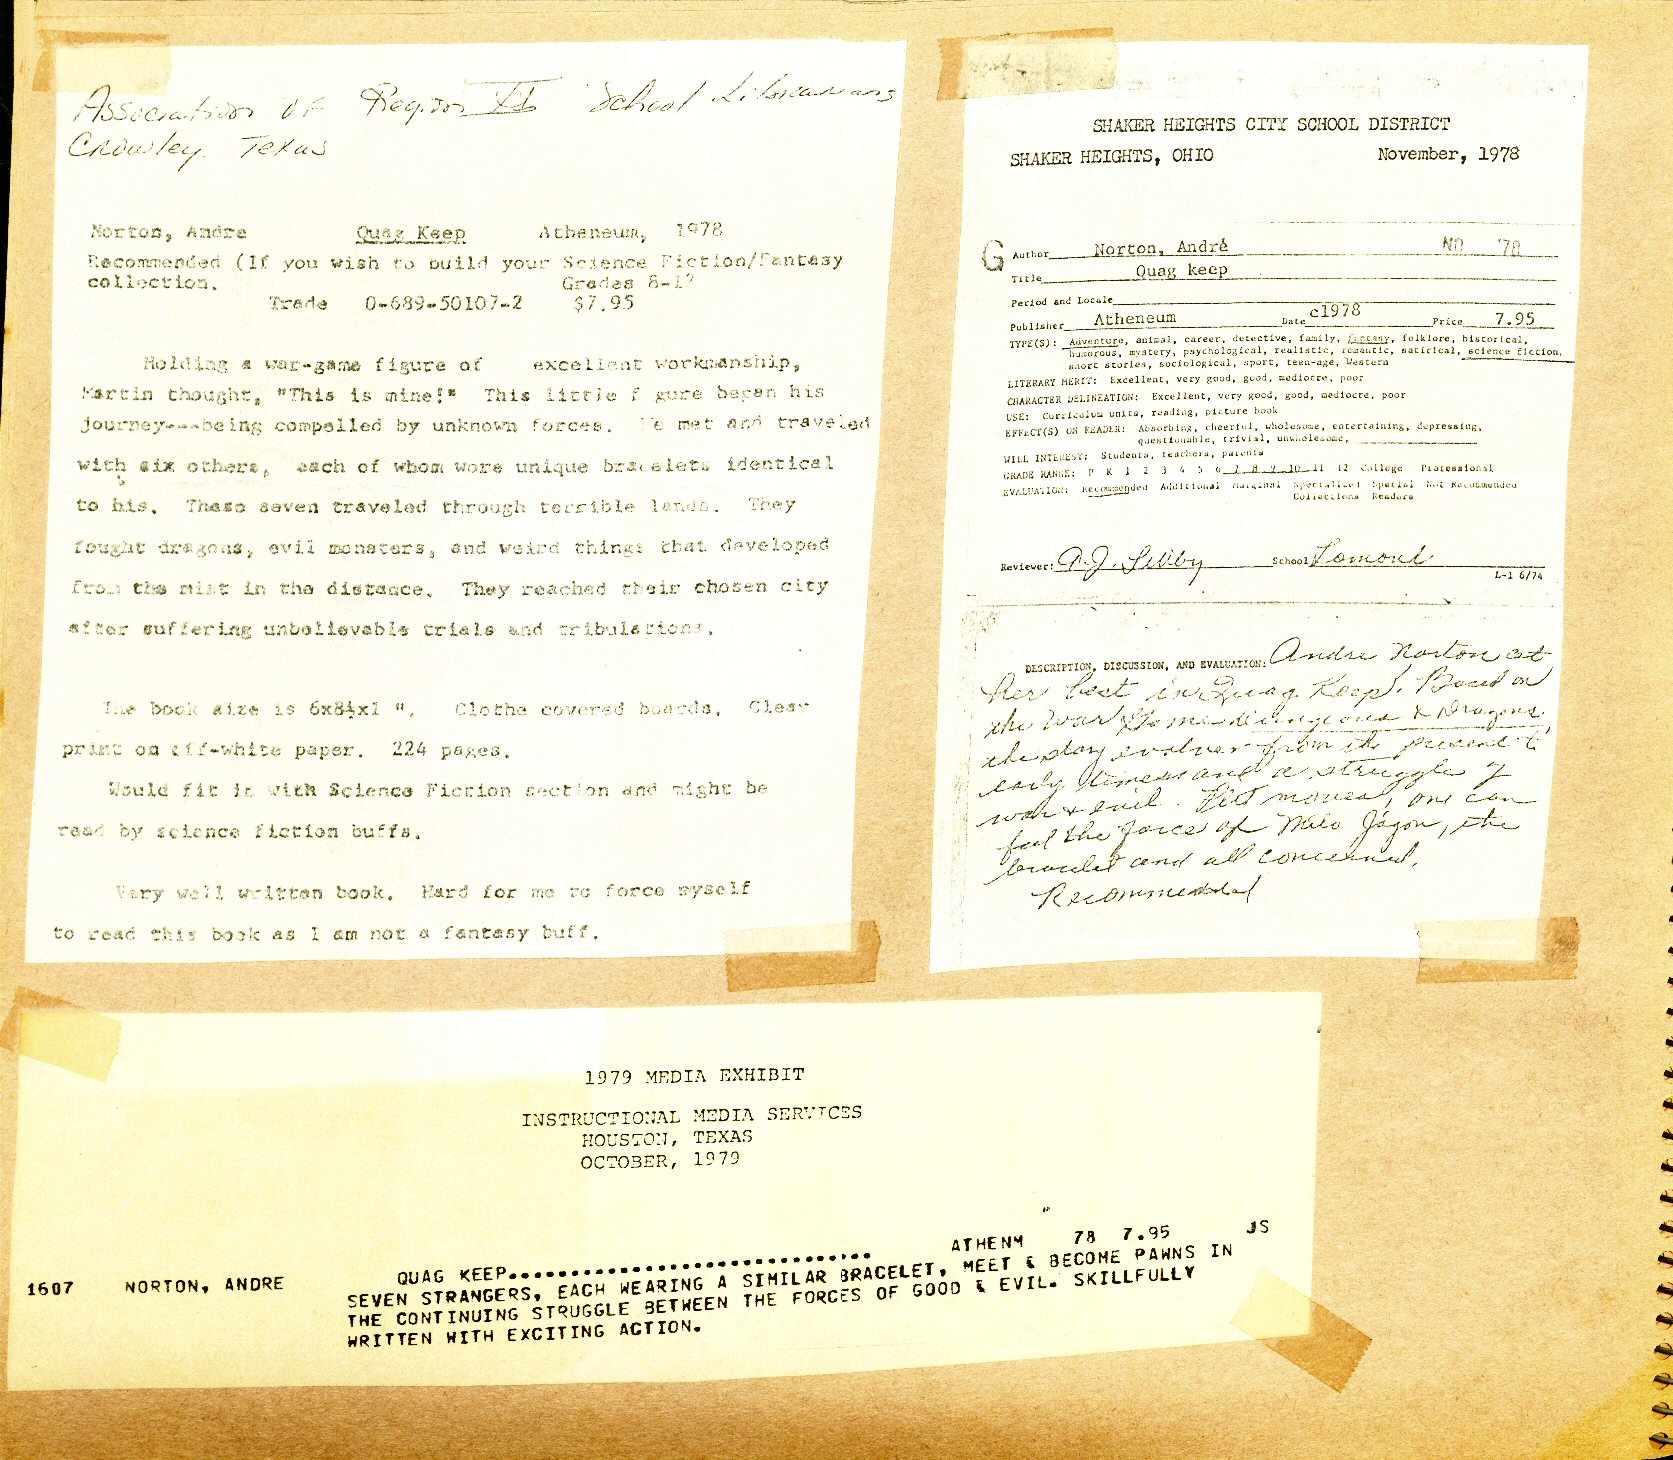 Association of Region XI School Librarians
Crowley, Texas
Norton, Andre Quag Keep Atheneum, 1978
Recommended (If you wish to build your Science Fiction/Fantasy
collection. Grades 8-12
Trade 0-689-50107-2 $7.95
Holding a war-game figure of excellent workmanship,
Martin thought, "This is mine!" This little f gure began his
journey---being compelled by unknown forces. He met and traveled
with six others, each of whom wore unique bracelets identical
to his. These seven traveled through terrible lands. They
fought dragons, evil monsters, and weird things that developed
from the mist in the distance. They reached their chosen city
after suffering unbelievable trials and tribulations.
The book size is 6x8½x1 ". Clothe covered boards. Clear
print on off-white paper. 224 pages.
Would fit in with Science Fiction section and might be
read by science fiction buffs.
Very well written book. Hard for me to force myself
to read this book as I am not a fantasy buff.
SHAKER HEIGHTS CITY SCHOOL DISTRICT
SHAKER HEIGHTS, OHIO November, 1978
G Author Norton, André NO '78
Title Quag keep
Period and Locale
Publisher Atheneum Date c1978 Price 7.95
TYPE(S): Adventure, animal, career, detective, family, fantasy, folklore, historical,
humorous, mystery, psychological, realistic, romantic, satirical, science fiction,
short stories, sociological, sport, teen-age, Western
LITERARY MERIT: Excellent, very good, good, mediocre, poor
CHARACTER DELINEATION: Excellent, very good, good, mediocre, poor
USE: Curriculum units, reading, picture book
EFFECT(S) ON READER: Absorbing, cheerful, wholesome, entertaining, depressing,
questionable, trivial, unwholesome,
WILL INTEREST: Students, teachers, parents
GRADE RANGE: P K 1 2 3 4 5 6 7 8 9 10 11 12 College Professional
EVALUATION: Recommended Additional Marginal Specialized Special Not Recommended
Collections Readers
Reviewer: School Lomond
L-1 6/74
DESCRIPTION, DISCUSSION, AND EVALUATION: Andre Norton at
her best in Quag Keep! Based on
the War Game dungeons & Dragons
the story evolves from the present to
early times and a struggle of
war & evil. Plot moves, one can
feel the force of Milo Jagon, the
bracelet and all concerned.
Recommended
1979 MEDIA EXHIBIT
INSTRUCTIONAL MEDIA SERVICES
HOUSTON, TEXAS
OCTOBER, 1979
1607 NORTON, ANDRE QUAG KEEP.............................. ATHENM 78 7.95 JS
SEVEN STRANGERS, EACH WEARING A SIMILAR BRACELET, MEET & BECOME PAWNS IN
THE CONTINUING STRUGGLE BETWEEN THE FORCES OF GOOD & EVIL. SKILLFULLY
WRITTEN WITH EXCITING ACTION.